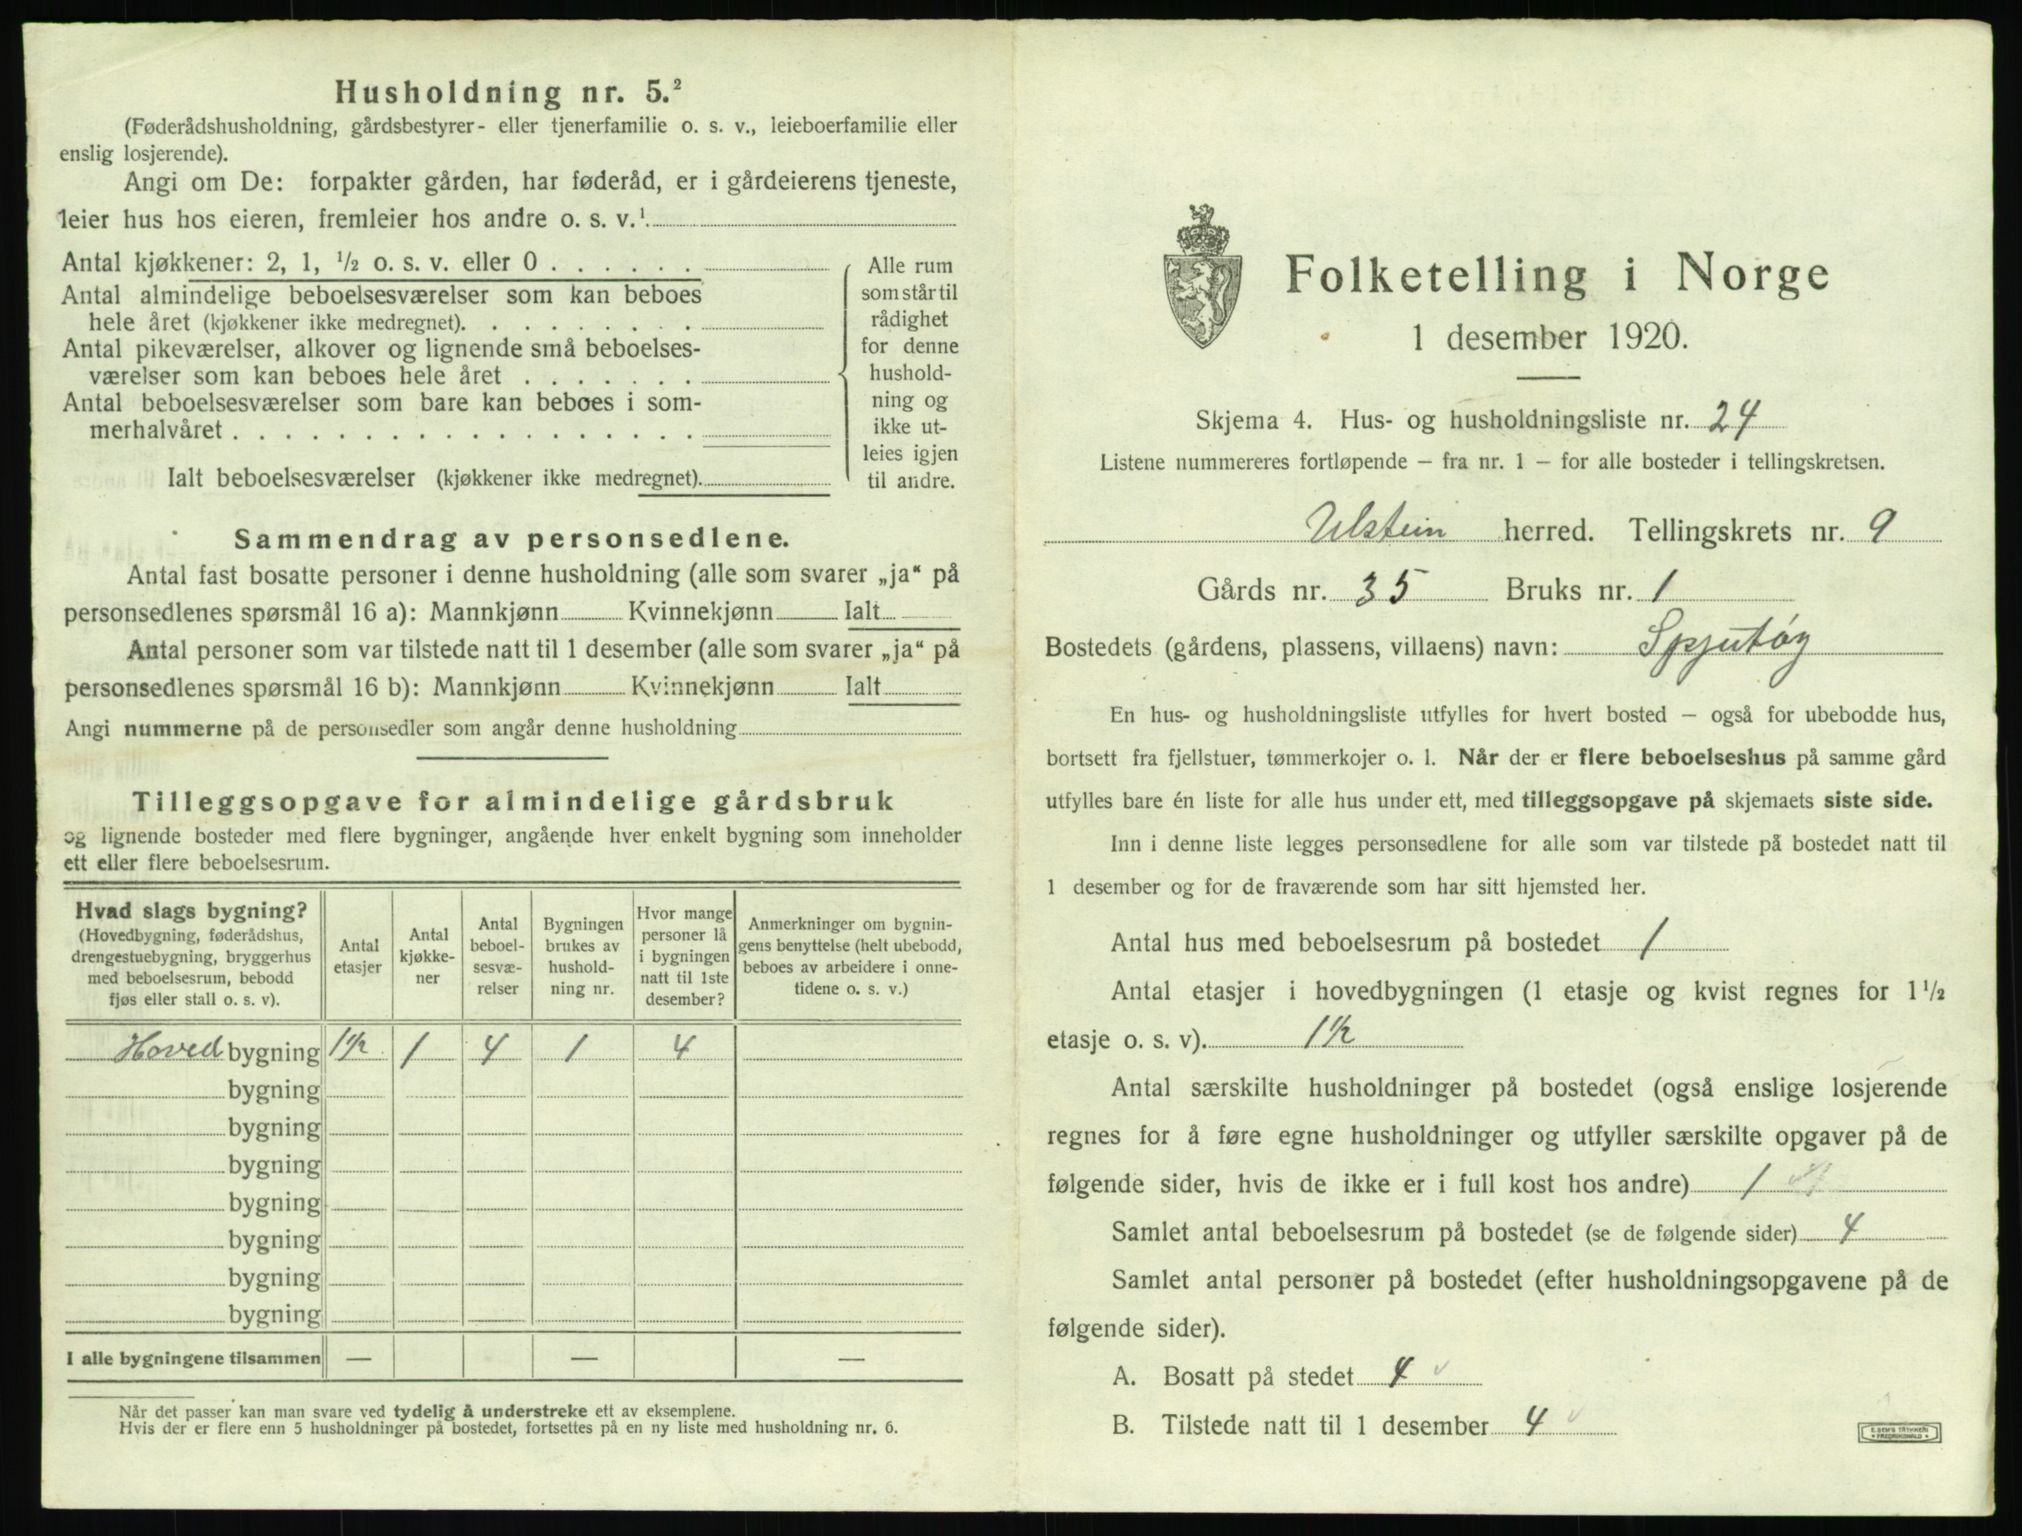 Husholdning nr. 5.²
(Føderådshusholdning, gårdsbestyrer- eller tjenerfamilie o. s. v., leieboerfamilie eller
enslig losjerende).
Angi om De: forpakter gården, har føderåd, er i gårdeierens tjeneste,
leier hus hos eieren, fremleier hos andre o. s. v.¹
Antal kjøkkener: 2, 1, ½ o. s. v. eller 0 . . . . . .
Antal almindelige beboelsesværelser som kan beboes
hele året (kjøkkener ikke medregnet). . . . . . . . .
Antal pikeværelser, alkover og lignende små beboelses-
værelser som kan beboes hele året . . . . . . .
Antal beboelsesværelser som bare kan beboes i som-
merhalvåret . . . . . . . . . . . . . . . . . .
Ialt beboelsesværelser (kjøkkener ikke medregnet).
Alle rum
som står til
rådighet
for denne
hushold-
ning og
ikke ut-
leies igjen
til andre.
Sammendrag av personsedlene.
Antal fast bosatte personer i denne husholdning (alle som svarer „ja“ på
personsedlenes spørsmål 16 a): Mannkjønn Kvinnekjønn Ialt
Antal personer som var tilstede natt til 1 desember (alle som svarer „ja“ på
personsedlenes spørsmål 16 b): Mannkjønn Kvinnekjønn Ialt
Angi nummerne på de personsedler som angår denne husholdning
Tilleggsopgave for almindelige gårdsbruk
og lignende bosteder med flere bygninger, angående hver enkelt bygning som inneholder
ett eller flere beboelsesrum.
Hvad slags bygning?
(Hovedbygning, føderådshus,
drengestuebygning, bryggerhus
med beboelsesrum, bebodd
fjøs eller stall o. s. v).
Antal
etasjer
Antal
kjøkke-
ner
Antal
beboel-
sesvæ-
relser
Bygningen
brukes av
hushold-
ning nr.
Hvor mange
personer lå
i bygningen
natt til 1ste
desember?
Anmerkninger om bygnin-
gens benyttelse (helt ubebodd,
beboes av arbeidere i onne-
tidene o. s. v.)
Hoved bygning 1½ 1 4 1 4
bygning
bygning
bygning
bygning
bygning
bygning
bygning
I alle bygningene tilsammen — — —
Når det passer kan man svare ved tydelig å understreke ett av eksemplene.
Hvis der er flere enn 5 husholdninger på bostedet, fortsettes på en ny liste med husholdning nr. 6.
Folketelling i Norge
1 desember 1920.
Skjema 4. Hus- og husholdningsliste nr. 24
Listene nummereres fortløpende – fra nr. 1 – for alle bosteder i tellingskretsen.
Ulstein herred. Tellingskrets nr. 9
Gårds nr. 35 Bruks nr. 1
Bostedets (gårdens, plassens, villaens) navn: Spjutøy
En hus- og husholdningsliste utfylles for hvert bosted – også for ubebodde hus,
bortsett fra fjellstuer, tømmerkojer o. l. Når der er flere beboelseshus på samme gård
utfylles bare én liste for alle hus under ett, med tilleggsopgave på skjemaets siste side.
Inn i denne liste legges personsedlene for alle som var tilstede på bostedet natt til
1 desember og for de fraværende som har sitt hjemsted her.
Antal hus med beboelsesrum på bostedet 1
Antal etasjer i hovedbygningen (1 etasje og kvist regnes for 1½
etasje o. s. v). 1½
Antal særskilte husholdninger på bostedet (også enslige losjerende
regnes for å føre egne husholdninger og utfyller særskilte opgaver på de
følgende sider, hvis de ikke er i full kost hos andre) 1
Samlet antal beboelsesrum på bostedet (se de følgende sider) 4
Samlet antal personer på bostedet (efter husholdningsopgavene på de
følgende sider).
A. Bosatt på stedet 4
B. Tilstede natt til 1 desember 4
E. SEM'S TRYKKERI
FREDRIKSHALD